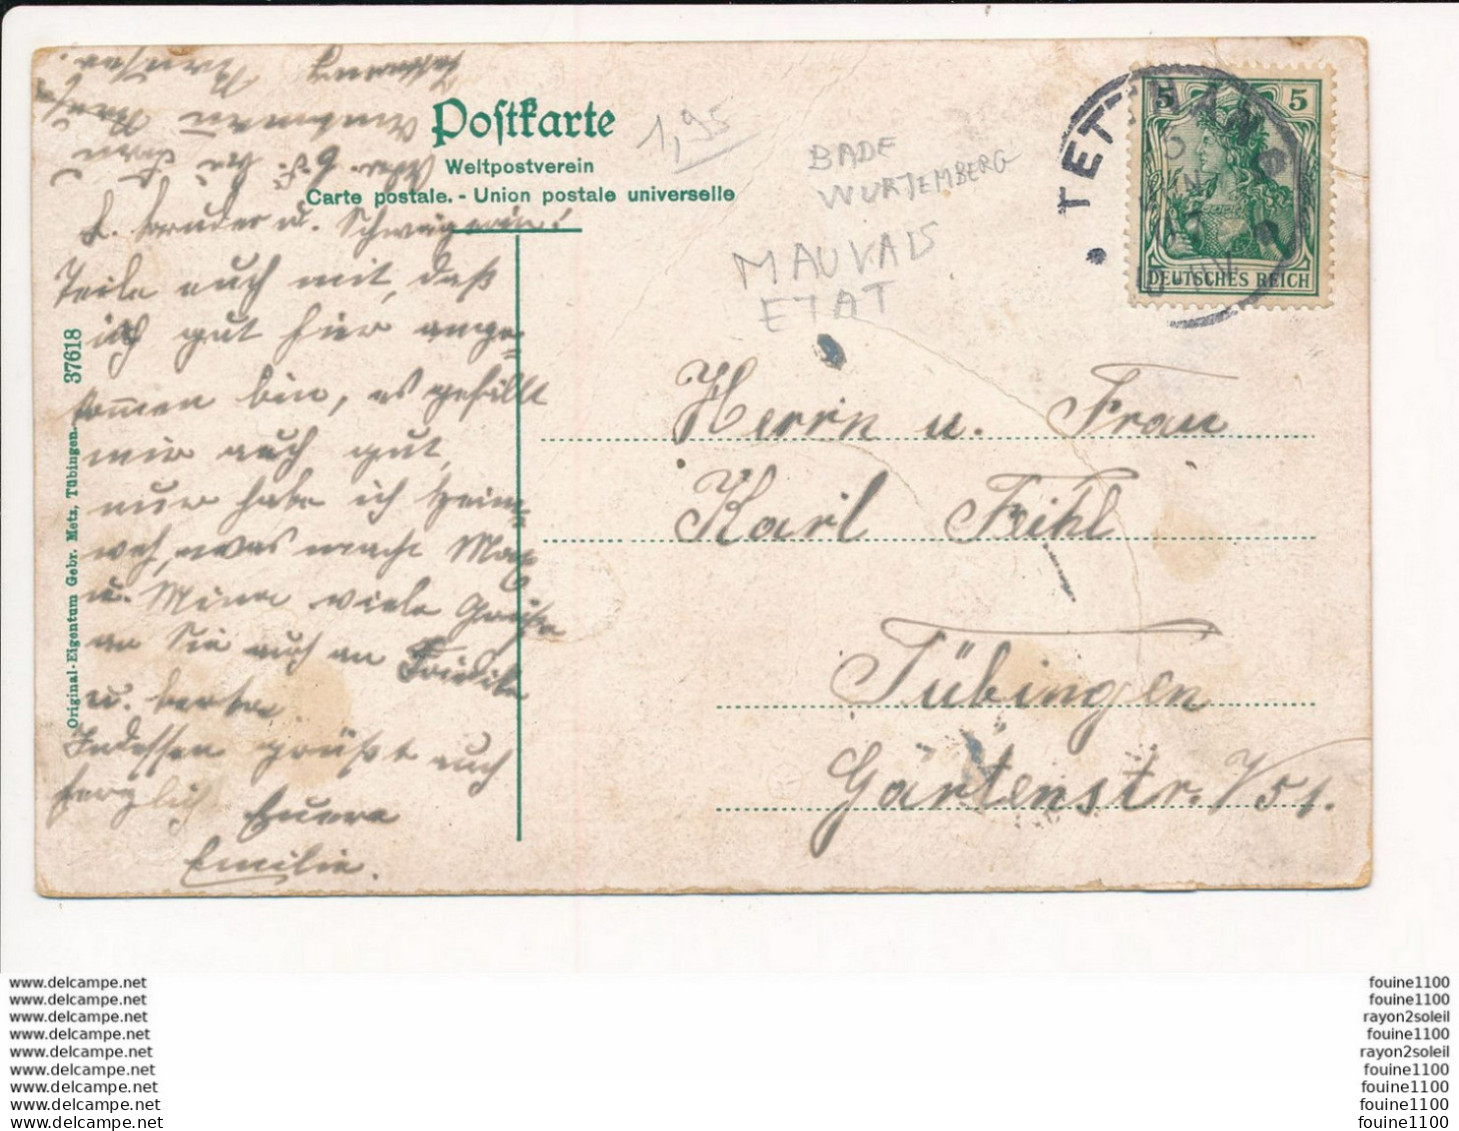 Postkarte
Weltpostverein
Carte postale. - Union postale universelle
1,95
BADE
WURTEMBERG
MAUVAIS
ETAT
TETTNANG
5 5
DEUTSCHES REICH
L. Bruder u. Schwägerin!
Teile euch mit, daß
ich gut hier ange-
kommen bin, es gefällt
mir auch gut,
nur habe ich Heim-
weh, was macht Max
u. Mina viele Grüße
an Sie auch an
u. Berta
Indessen grüßt euch
herzlich Euere
Emilie.
Herrn u. Frau
Karl Feihl
Tübingen
Gartenstr. 51.
37618
Original-Eigentum Gebr. Metz, Tübingen.
www.delcampe.net
www.delcampe.net
www.delcampe.net
www.delcampe.net
www.delcampe.net
www.delcampe.net
www.delcampe.net
www.delcampe.net
www.delcampe.net
fouine1100
fouine1100
rayon2soleil
fouine1100
rayon2soleil
fouine1100
fouine1100
fouine1100
fouine1100